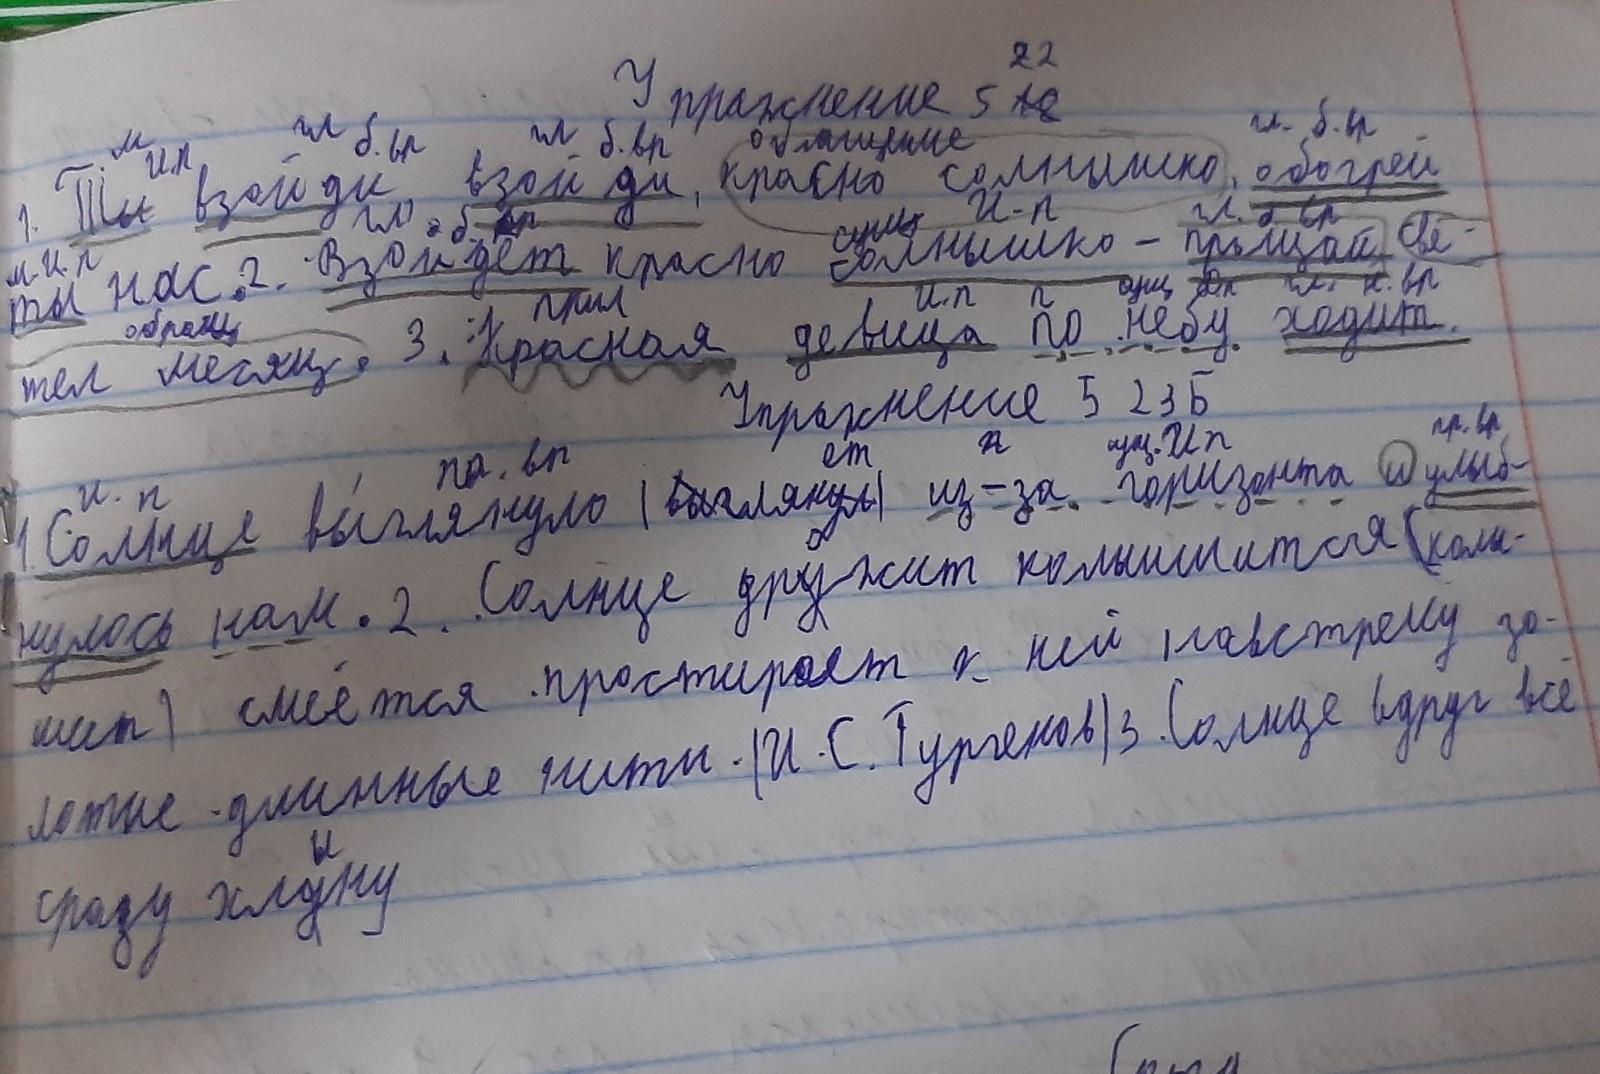 22
Упражнение 5
м и.п гл б.вр гл б.вр обращение гл. б.вр
1. Ты взойди, взойди, красно солнышко, обогрей
м.и.п гл. б. вр сущ и-п гл. б. вр
ты нас. 2. Взойдёт красно солнышко – прощай, све-
обращ прил и.п п сущ Дп гл. н.вр
тел месяц. 3. Красная девица по небу ходит.
Упражнение 523Б
и. п пр. вр ет сущ. И п пр. вр
1. Солнце выглянуло (выглянул) из-за горизонта и улыб-
нулось нам. 2. Солнце дружит колышится (колы-
шит) смеётся простирает к ней навстречу зо-
лотые длинные нити. (И. С. Тургенов) 3. Солнце вдруг всё
ы
сразу хлуну